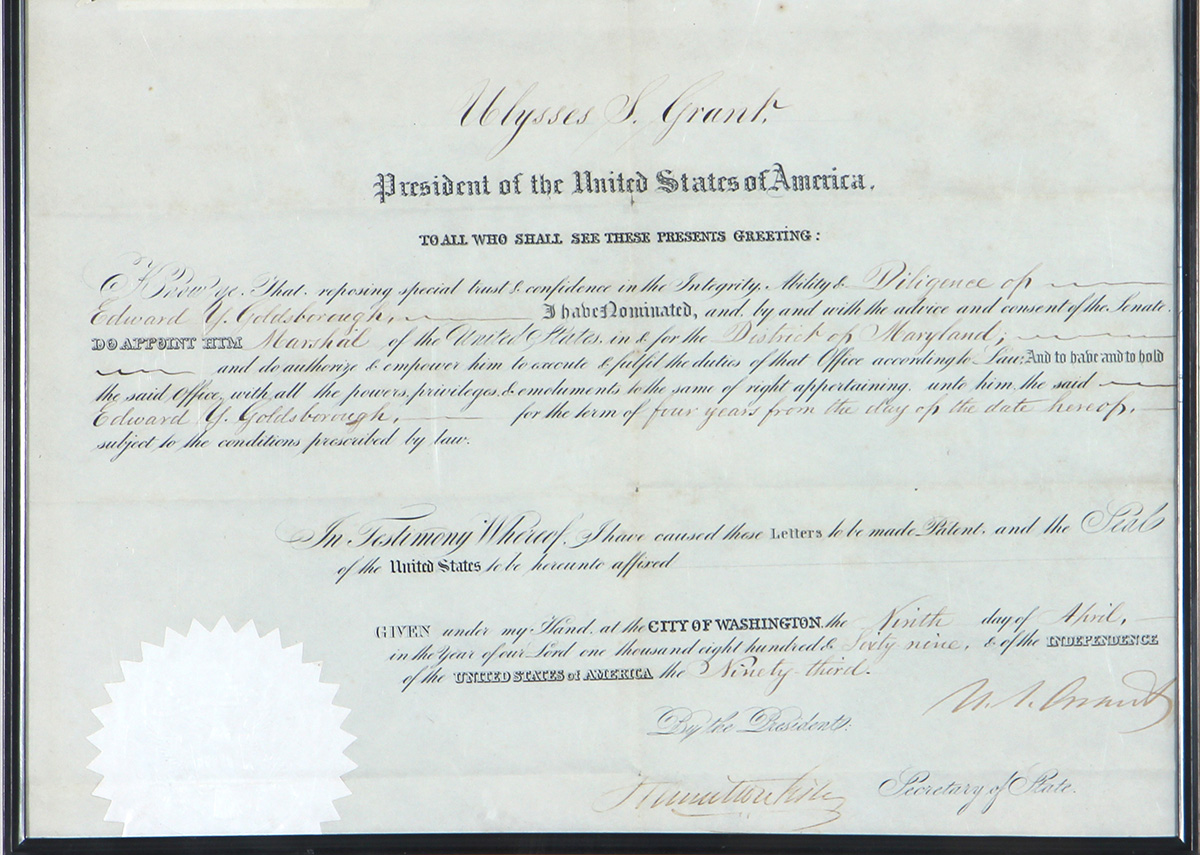 Ulysses S. Grant,
President of the United States of America.
TO ALL WHO SHALL SEE THESE PRESENTS GREETING:
Know ye, That, reposing special trust & confidence in the Integrity, Ability & Diligence of
Edward Y. Goldsborough, I have Nominated, and, by and with the advice and consent of the Senate,
DO APPOINT HIM Marshal of the United States, in & for the District of Maryland;
and do authorize & empower him to execute & fulfil the duties of that Office according to Law: And to have and to hold
the said Office, with all the powers, privileges, & emoluments to the same of right appertaining, unto him, the said
Edward Y. Goldsborough, for the term of four years from the day of the date hereof,
subject to the conditions prescribed by law.
In Testimony Whereof, I have caused these Letters to be made Patent, and the Seal
of the United States to be hereunto affixed
GIVEN under my Hand, at the CITY OF WASHINGTON, the Ninth day of April,
in the Year of our Lord one thousand eight hundred & Sixty nine, & of the INDEPENDENCE
of the UNITED STATES of AMERICA the Ninety-third.
U. S. Grant
By the President:
Hamilton Fish Secretary of State.